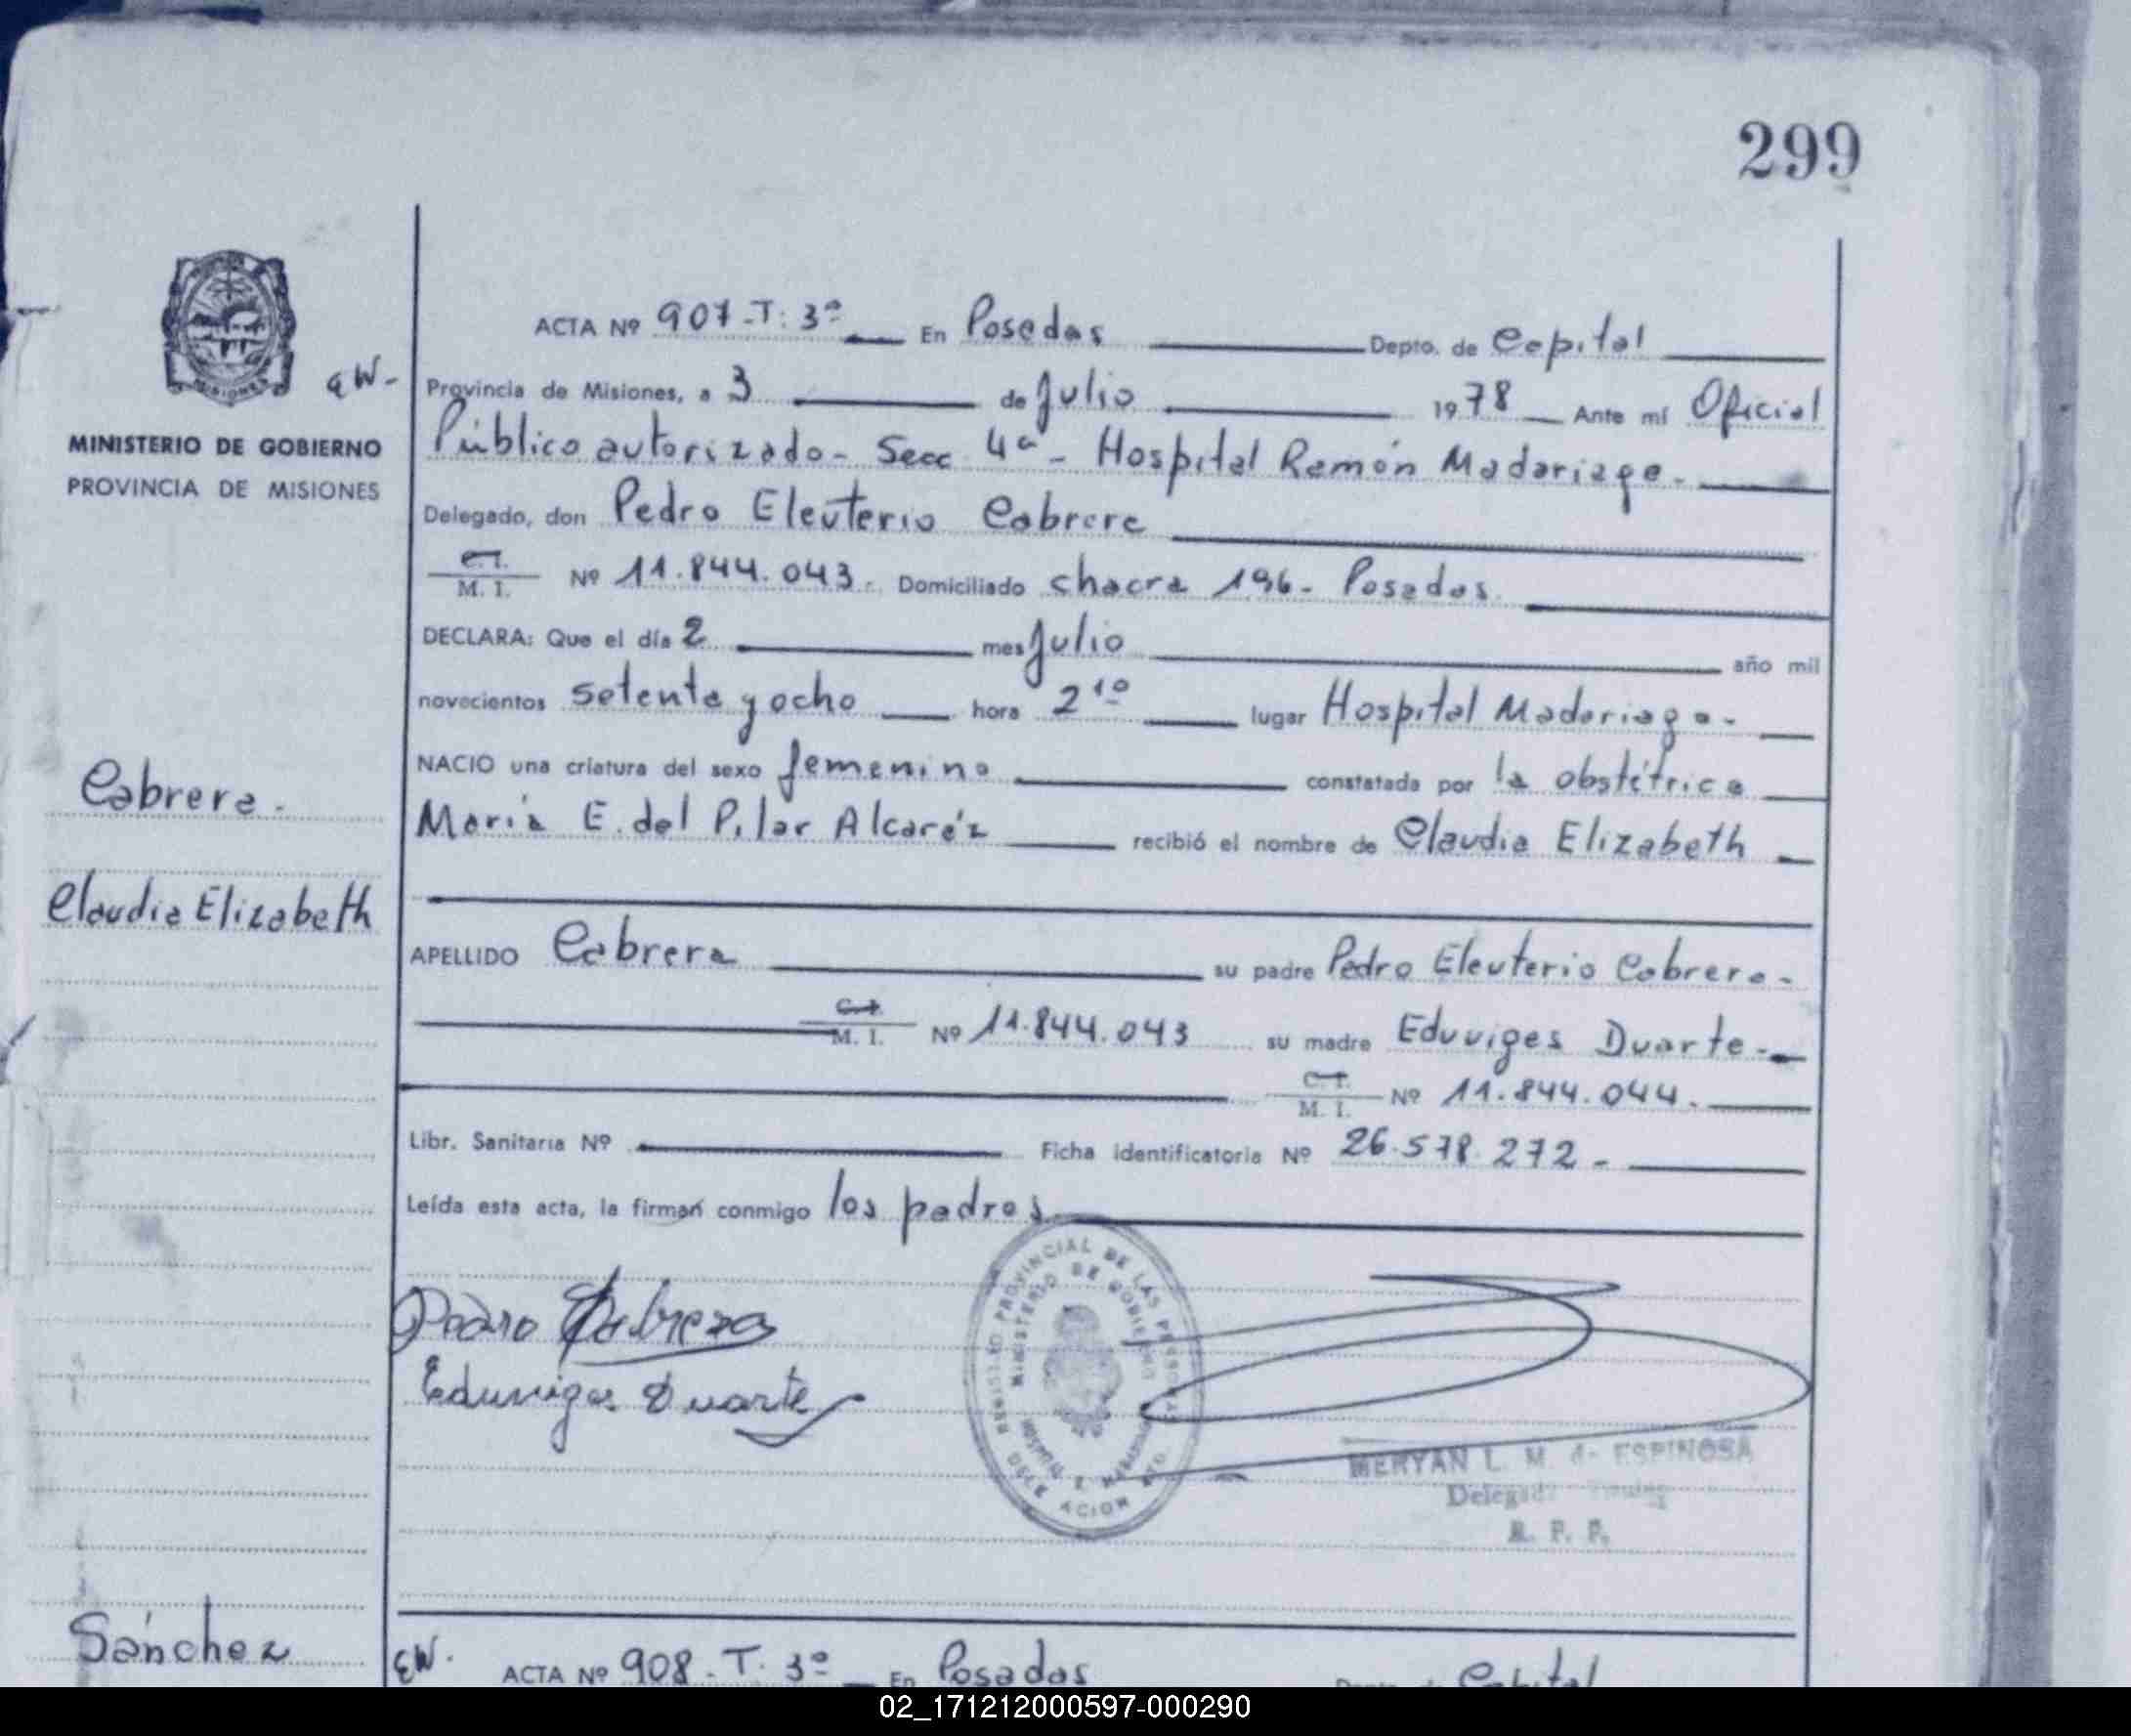 299
ACTA Nº 907-T: 3º En Posadas Depto. de Capital
EW- Provincia de Misiones, a 3 de Julio 1978 Ante mí Oficial
MINISTERIO DE GOBIERNO
PROVINCIA DE MISIONES
Público autorizado- Secc 4ª- Hospital Ramón Madariaga.-
Delegado, don Pedro Eleuterio Cabrera
C.I.
M. I. Nº 11.844.043. Domiciliado chacra 196- Posadas.
DECLARA: Que el día 2 mes Julio año mil
novecientos setenta y ocho hora 2¹⁰ lugar Hospital Madariaga.-
NACIO una criatura del sexo femenino constatada por la obstétrica
Cabrera.
María E. del Pilar Alcaréz recibió el nombre de Claudia Elizabeth
Claudia Elizabeth
APELLIDO Cabrera su padre Pedro Eleuterio Cabrera-
C.I.
M. I. Nº 11.844.043 su madre Eduviges Duarte.-
C.I.
M. I. Nº 11.844.044.
Libr. Sanitaria Nº Ficha identificatoria Nº 26.578.272-
Leída esta acta, la firman conmigo los padres.
Pedro Cabrera
Eduviges Duarte
REGISTRO PROVINCIAL DE LAS PERSONAS
MINISTERIO DE GOBIERNO
MERYAN L. M. de ESPINOSA
R. P. P.
Sánchez
EW. ACTA Nº 908-T. 3º En Posadas Depto. de Capital
02_171212000597-000290